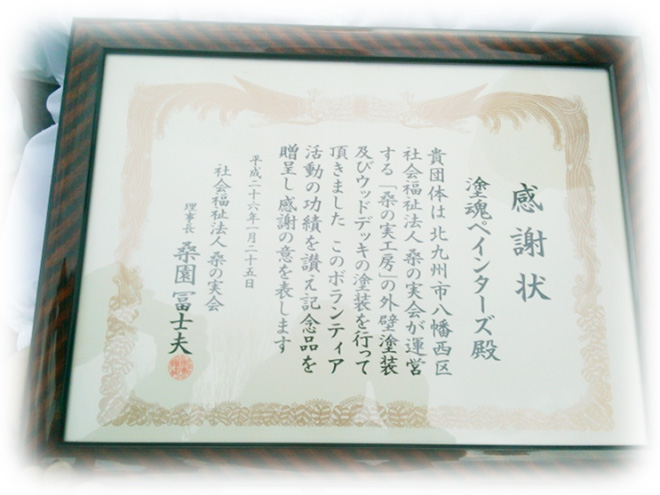 感謝状
塗魂ペインターズ殿
貴団体は北九州市八幡西区
社会福祉法人桑の実会が運営
する「桑の実工房」の外壁塗装
及びウッドデッキの塗装を行って
頂きました このボランティア
活動の功績を讃え記念品を
贈呈し感謝の意を表します
平成二十六年一月二十五日
社会福祉法人 桑の実会
理事長 桑園冨士夫